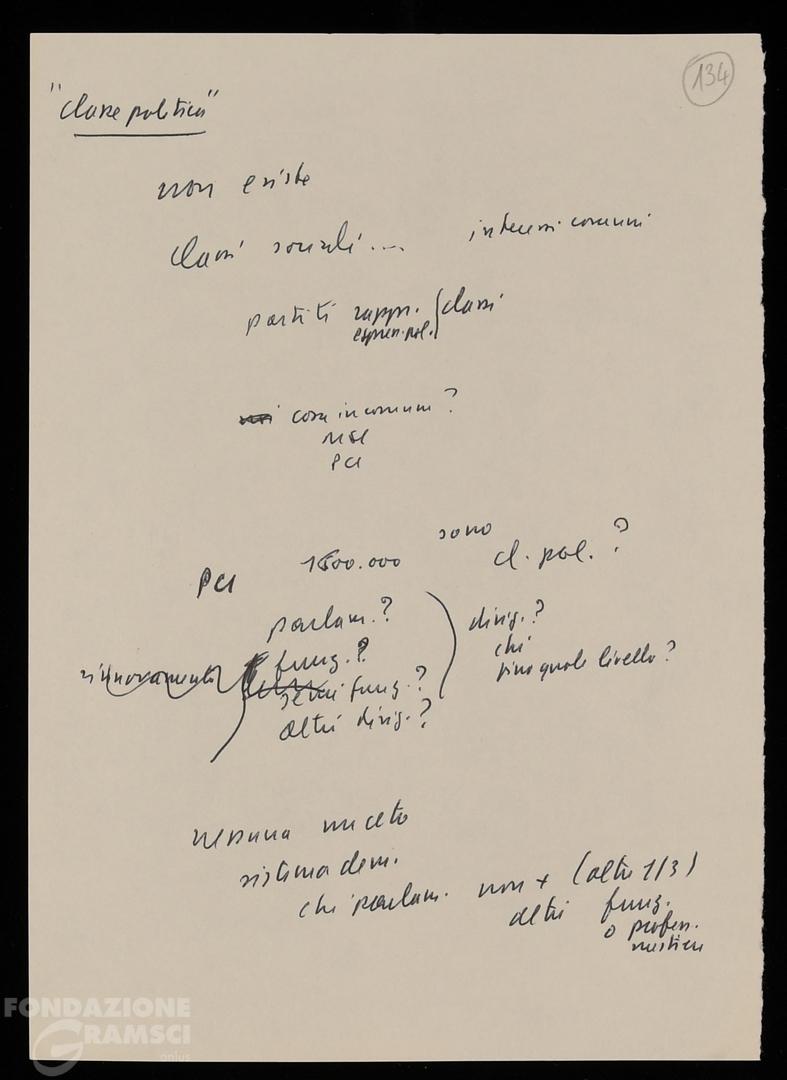 134
"classe politica"
non esiste
classi sociali.... interessi comuni
partiti rappr. classi
espress. pol.
cosa in comune?
MSI
PCI
sono
PCI 1800.000 cl. pol.?
parlam.? dirig.?
rinnovamento funz.? chi
semi funz.? fino quale livello?
altri dirig.?
nessuna
sistema dem.
chi parlam. non + (oltre 1/3)
altri funz.
o profess.
mestiere
FONDAZIONE
GRAMSCI
onlus